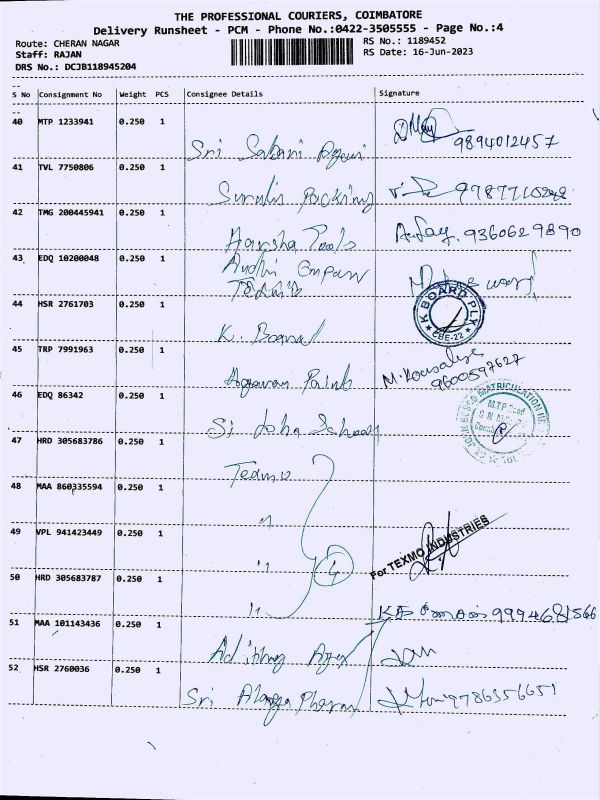 THE PROFESSIONAL COURIERS, COIMBATORE
Delivery Runsheet - PCM - Phone No.:0422-3505555 - Page No.:4
Route: CHERAN NAGAR
RS No.: 1189452
Staff: RAJAN
RS Date: 16-Jun-2023
DRS No.: DCJB118945204
S No Consignment No Weight PCS Consignee Details Signature
40 MTP 1233941 0.250 1
Sri 9894012457
41 TVL 7750806 0.250 1
Packing
42 TMG 200445941 0.250 1
Harsha Tools A. 9360629890
43 EDQ 10200048 0.250 1
44 HSR 2761703 0.250 1
K. Board
K BOARD PLY
CBE-22
45 TRP 7991963 0.250 1
M. Kousalya
9600597627
46 EDQ 86342 0.250 1
John School
MATRICULATION
47 HRD 305683786 0.250 1
48 MAA 860335594 0.250 1
"
49 VPL 941423449 0.250 1
" 4
For TEXMO INDUSTRIES
50 HRD 305683787 0.250 1
"
51 MAA 101143436 0.250 1
52 HSR 2760036 0.250 1
Sri 9786356651